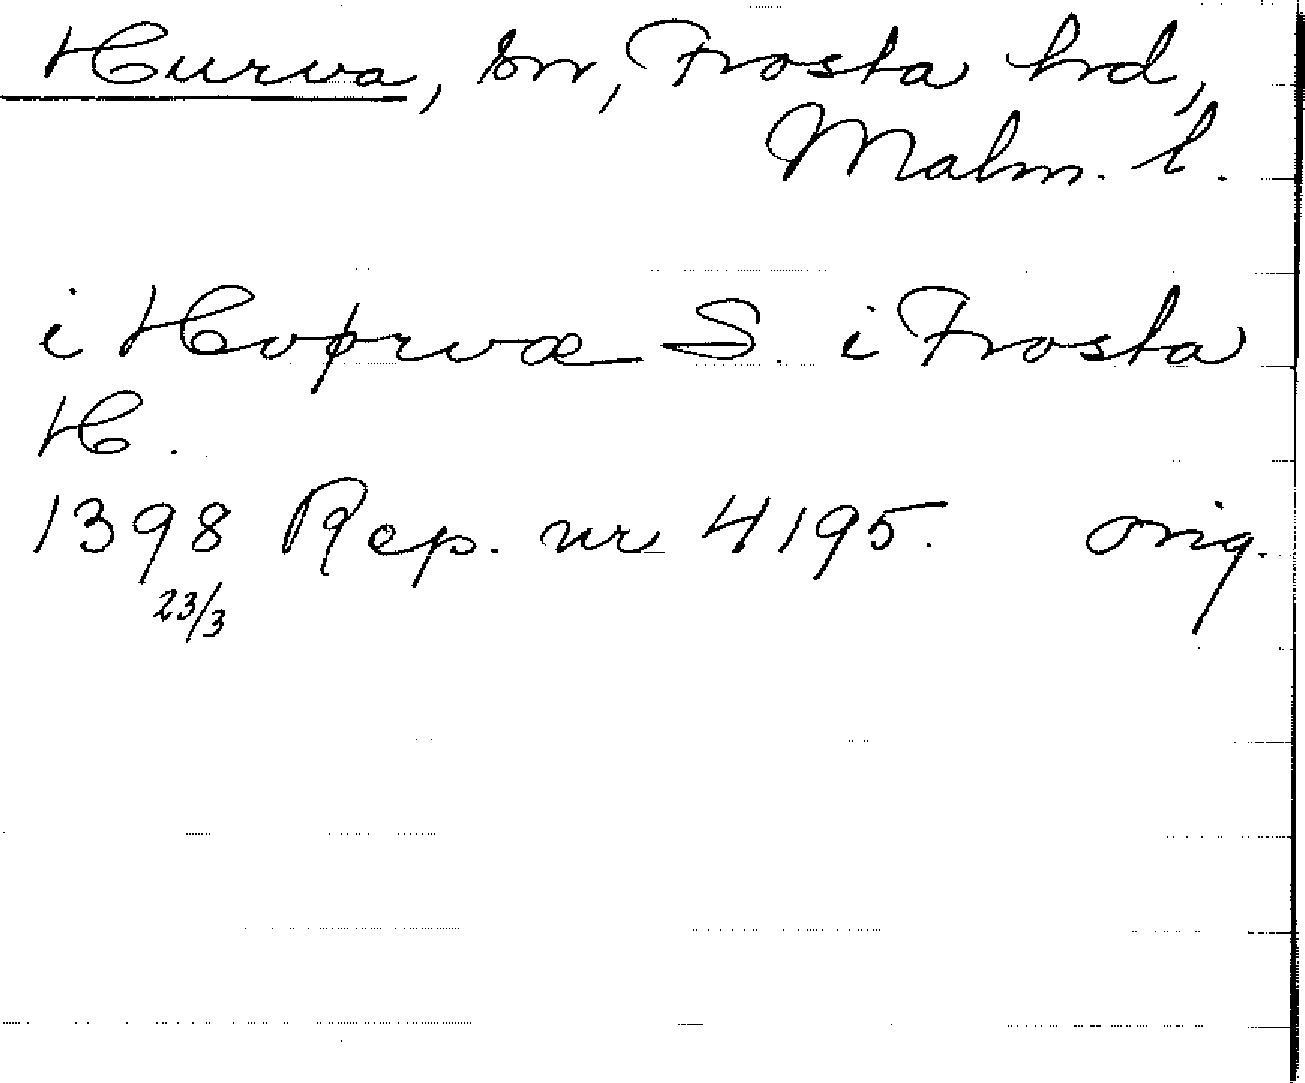 Hurva, sn, Frosta hrd,
Malm. l.
i Hoørwæ S. i Frosta
H.
1398 Rep. nr 4195. orig.
23/3